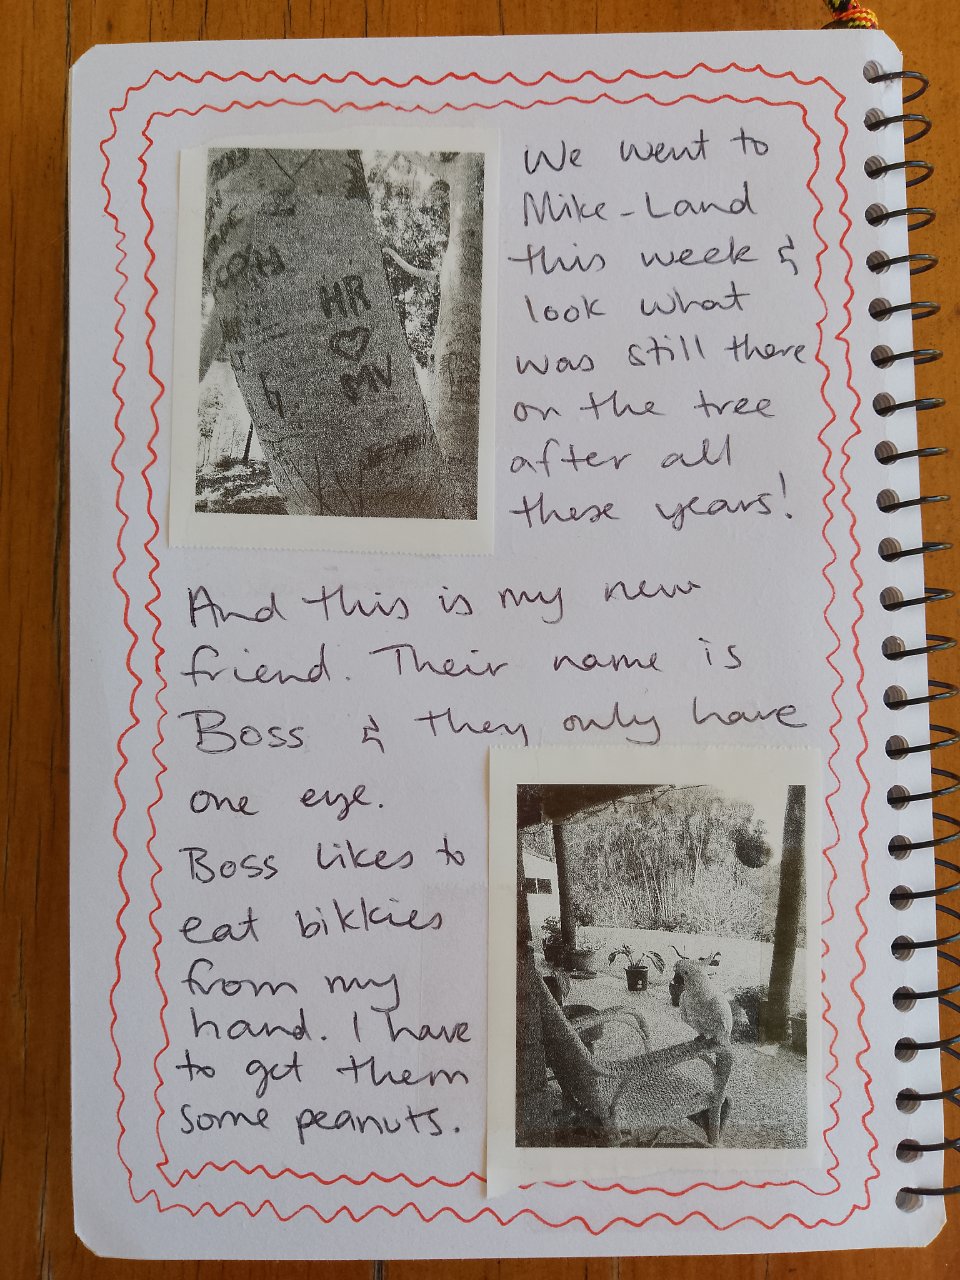 We went to
Mike-Land
this week &
look what
was still there
on the tree
after all
these years!
HR
♡
MV
And this is my new
friend. Their name is
Boss & they only have
one eye.
Boss likes to
eat bikkies
from my
hand. I have
to get them
some peanuts.